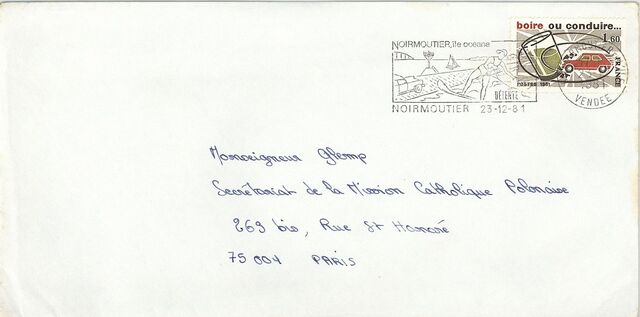 boire ou conduire...
1,60
NOIRMOUTIER, île océane
DÉTENTE
FRANCE
POSTES 1981
VENDÉE
NOIRMOUTIER 23-12-81
Monseigneur Glemp
Secrétariat de la Mission Catholique Polonaise
269 bis, Rue St Honoré
75001 PARIS